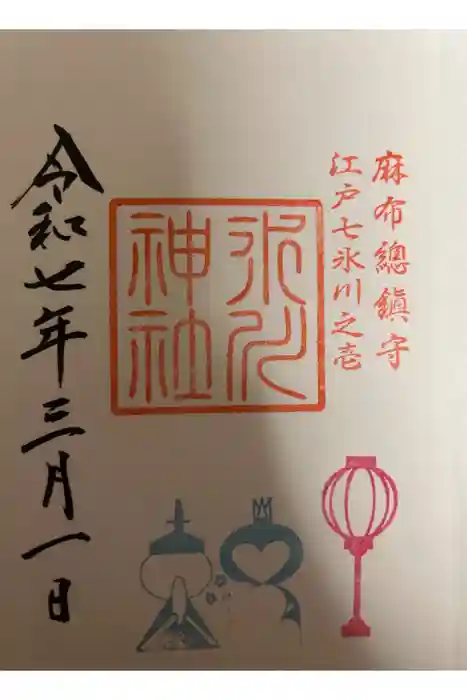 麻布總鎭守
江戸七氷川之壱
氷川
神社
令和七年三月一日